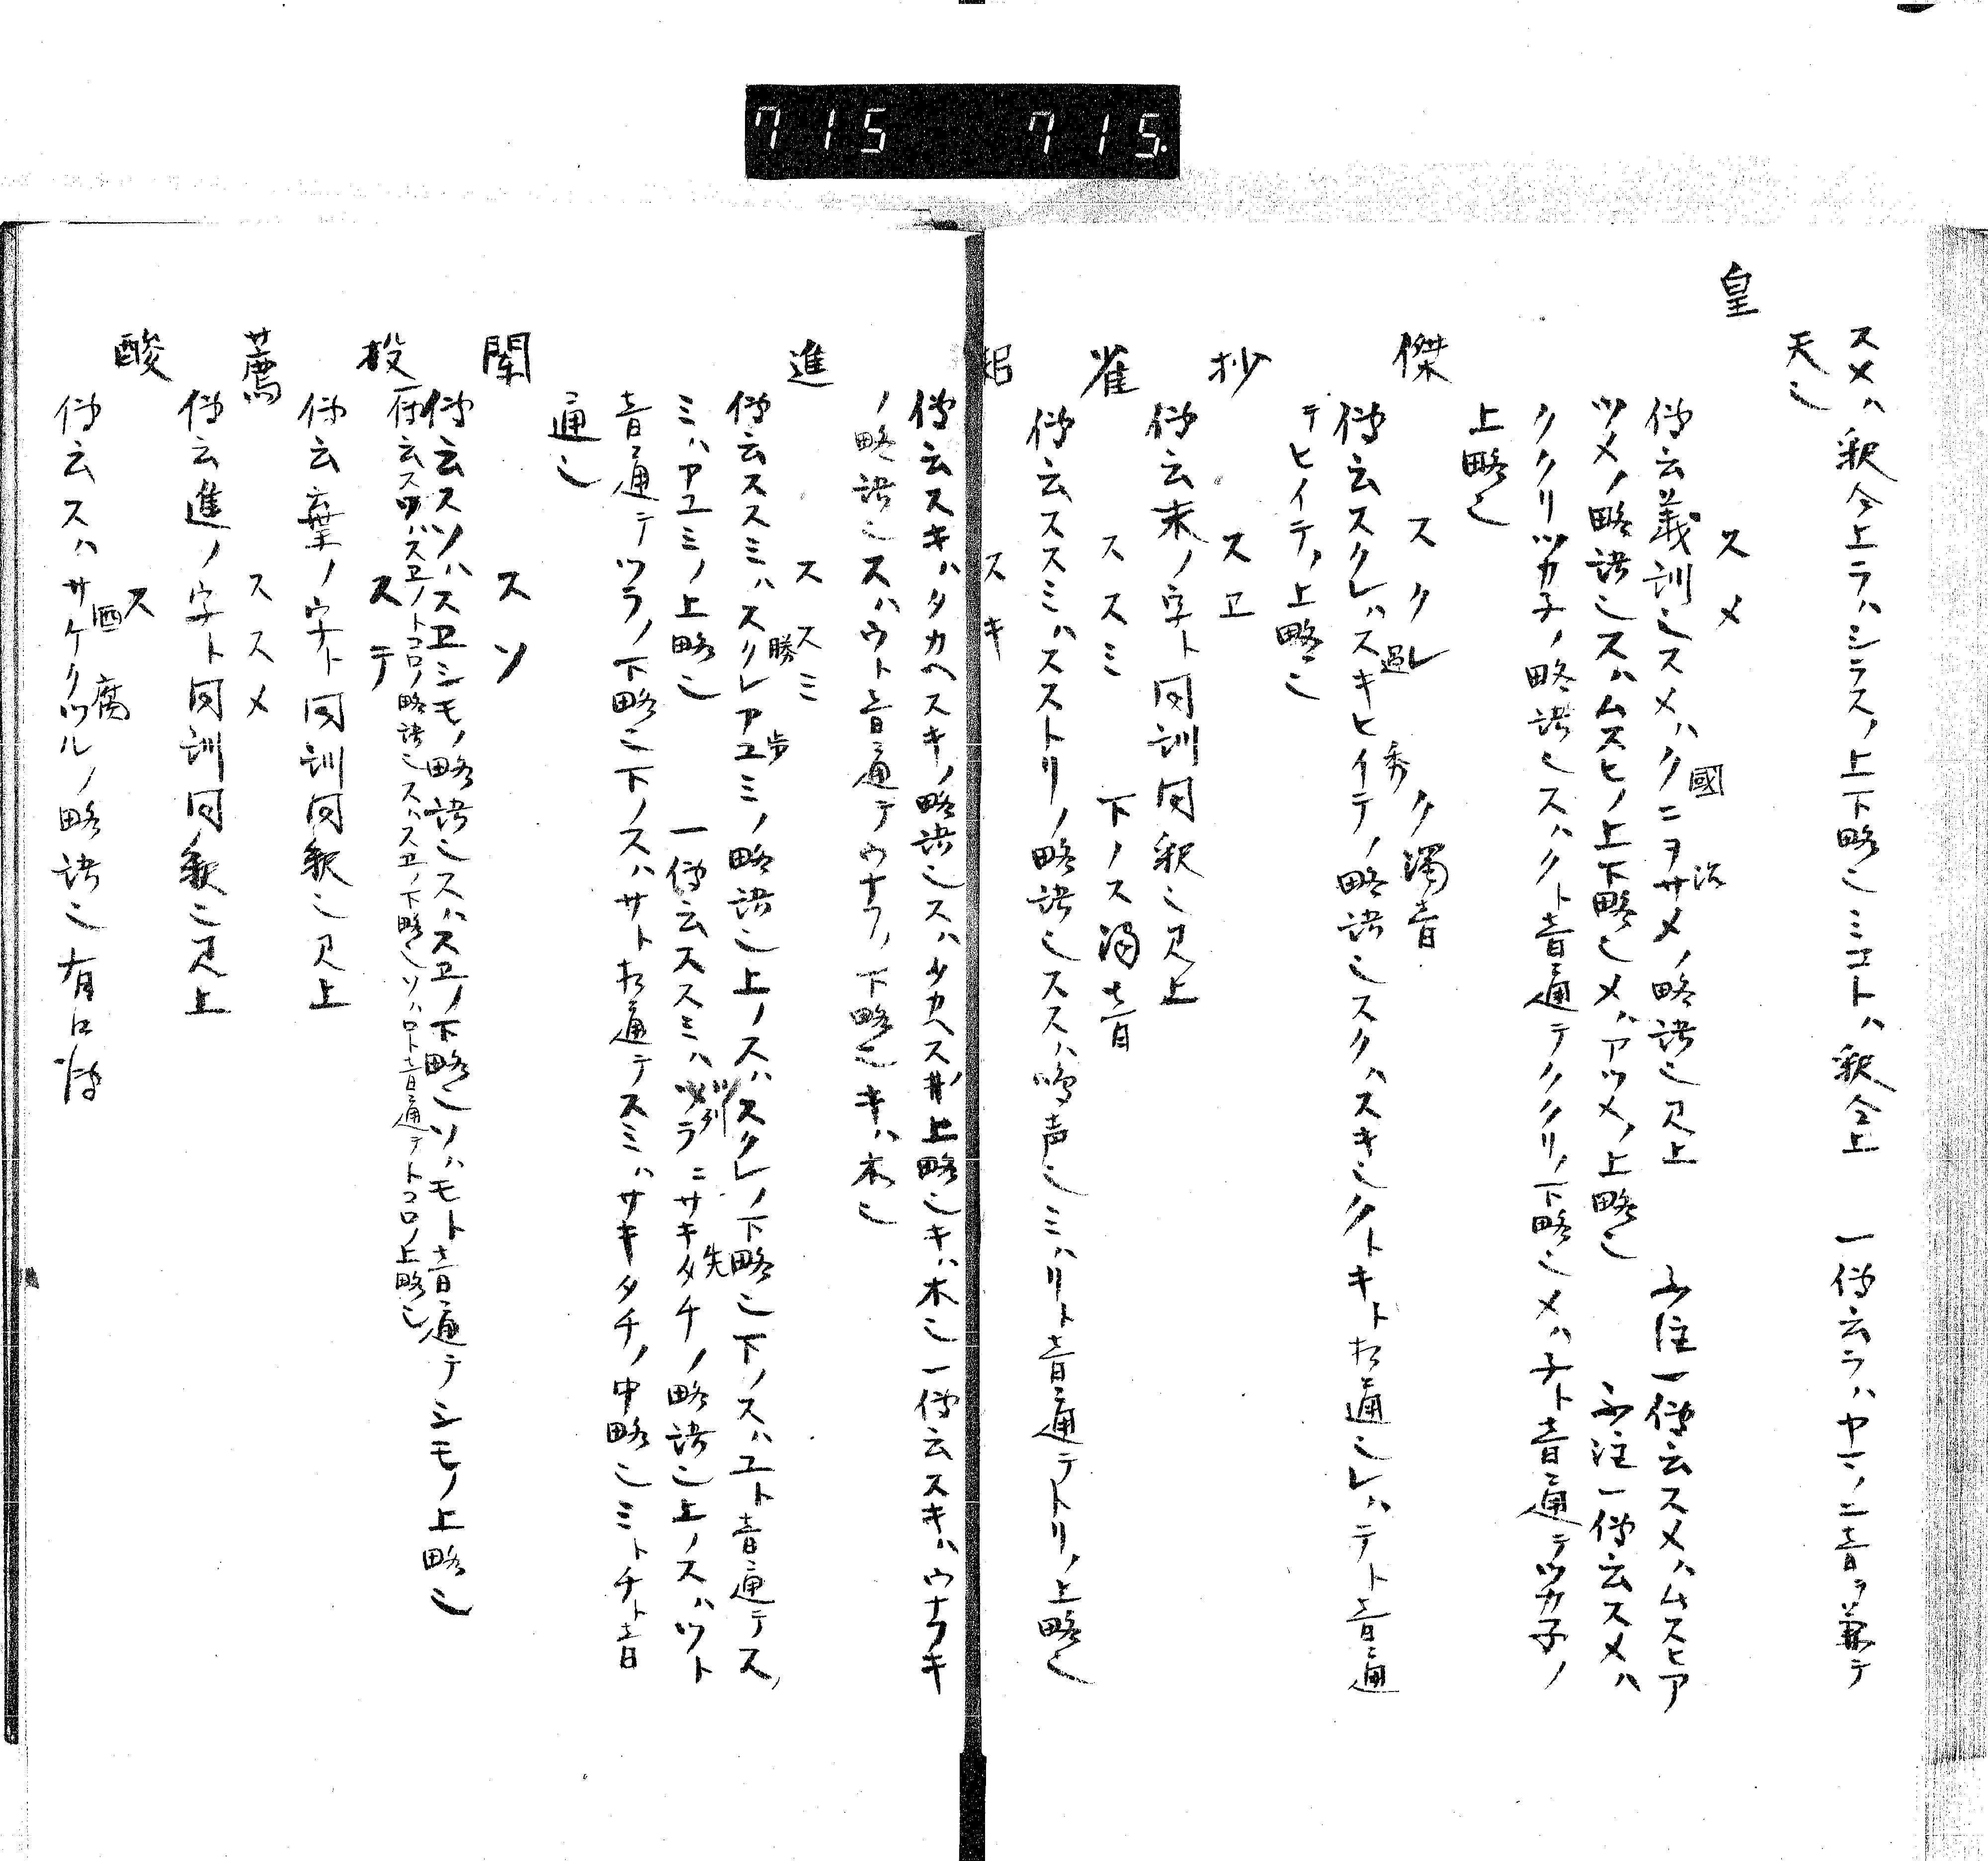 715 715
スメハ釈仝上ラハシラスノ上下略也ミコトハ釈仝上 一傳云ラハヤマノ二音ヲ兼テ
天也
皇 スメ
傳云義訓也スメハクニヲサメノ略語也見上 又注一傳云スメハムスヒア
國 治
ツメノ略語也スハムスヒノ上下略也メハアツメノ上略也 又注一傳云スメハ
ククリツカ子ノ略語也スハクト音通テククリノ下略也メハ子ト音通テツカ子ノ
上略也
傑 スクレ ク濁音
過 秀
傳云スクレハスキヒイテノ略語也スクハスキ也クトキト相通也レハテト音通
テヒイテノ上略也
抄 スヱ
傳云末ノ字ト同訓同釈也見上
雀 ススミ 下ノス濁音
傳云ススミハスストリノ略語也ススハ鳴声也ミハリト音通テトリノ上略也
耜 スキ
傳云スキハタカヘスキノ略語也スハタカヘスノ上略也キハ木也一傳云スキハウナフキ
ノ略語也スハウト音通テウナフノ下略也キハ木也
進 ススミ
勝 歩
傳云ススミハスクレアユミノ略語也上ノスハスクレノ下略也下ノスハユト音通テス
ミハアユミノ上略也 一傳云ススミハツラニサキタチノ略語也上ノスハツト
列 先
音通テツラノ下略也下ノスハサト相通テスミハサキタチノ中略也ミトチト音
通也
スソ
傳云スソハスヱシモノ略語也スハスヱノ下略也ソハモト音通テシモノ上略也
一傳云スソハスヱノトコロノ略語也スハスヱノ下略也ソハロト音通テトコロノ上略也
投 ステ
傳云棄ノ字ト同訓同釈也見上
薦 ススメ
傳云進ノ字ト同訓同釈也見上
酸 ス
酒 腐
傳云スハサケクツルノ略語也有口傳